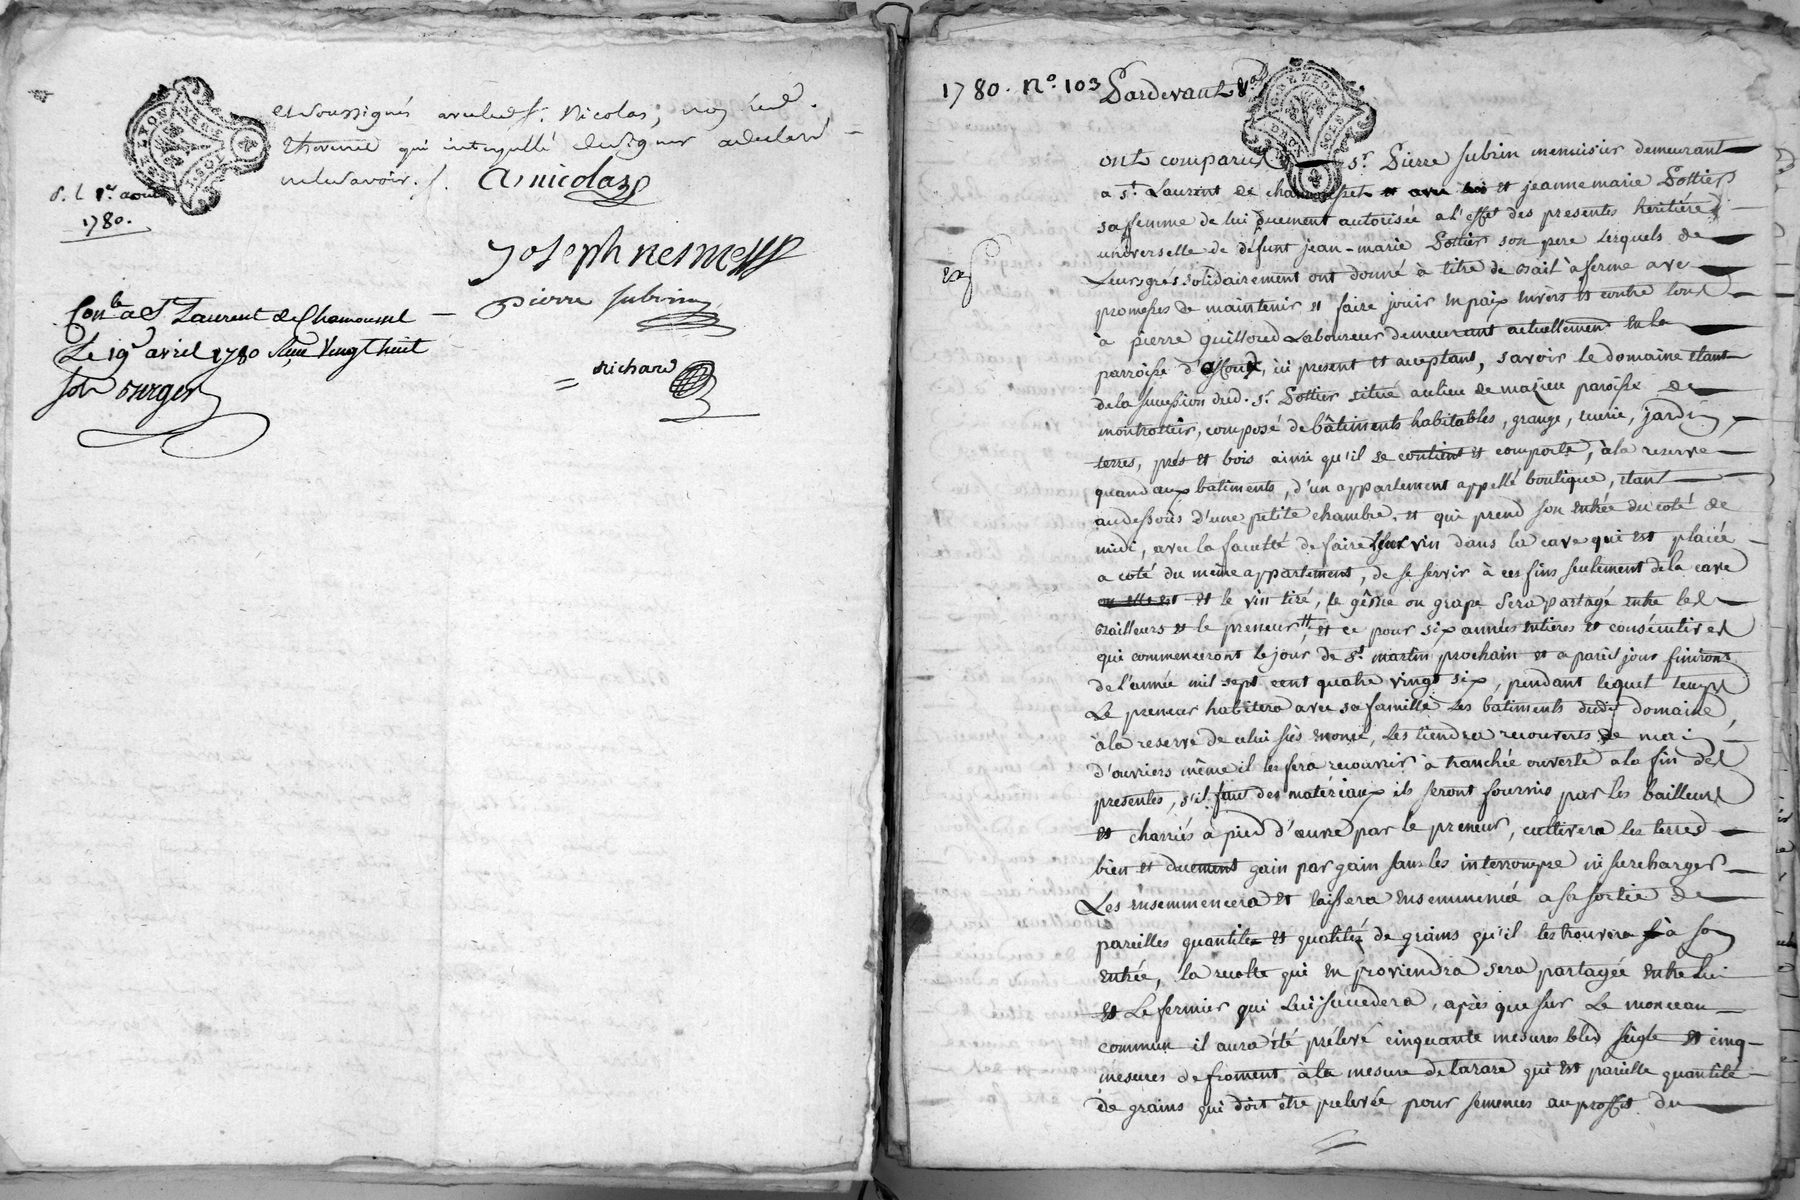 et soussignés avec led. sr. Nicolas, non led.
Thevenin qui interpellé de signer a declaré
ne le savoir. /.
A nicolas
d. l. 1er. aout
1780.
Joseph nesmes
pierre subrin
richard
Conlé a St Laurent de Chamousset
Le 19 avril 1780 Reçu Vingt huit
sols
1780. No. 103 Pardevant
ont comparus sr. Pierre subrin menuisier demeurant
a st. Laurent de chamousset et jeanne marie Pottier
sa femme de lui duement autorisée a l'effet des presentes heritiére
universelle de defunt jean-marie Pottier son pere lesquels de
Leurs grés solidairement ont donné à titre de bail à ferme avec
promesses de maintenir et faire jouir en paix envers et contre tous
à pierre guilloud Laboureur demeurant actuellement en la
parroisse d'affoux, ici present et acceptant, savoir le domaine etant
de la succession dud. sr. Pottier situé au lieu de mazieu paroisse de
montrottier, composé de bâtiments habitables, grange, ecurie, jardin,
terres, prés et bois ainsi qu'il se contient et comporte, à la reserve
quand aux batiments, d'un appartement appellé boutique, etant
au dessous d'une petite chambre, et qui prend son entrée du coté de
midi, avec la faculté de faire leur vin dans la cave qui est placée
a coté du même appartement, de se servir à ces fins seulement de la cave
et le vin tiré, le gêne ou grape sera partagé entre les
bailleurs et le preneur, et ce pour six années entieres et consécutives
qui commenceront le jour de st. martin prochain et a pareil jour finiront
de l'année mil sept cent quatre vingt six, pendant lequel temps
Le preneur habitera avec sa famille les batiments dudt. domaine,
à la reserve de celui sus enoncé, les tiendra recouverts de main
d'ouvriers même il les fera recouvrir à tranchée ouverte a la fin des
presentes, s'il faut des matériaux ils seront fournis par les bailleurs
et charriés à pied d'œuvre par le preneur, cultivera les terres
bien et duement gain par gain sans les interrompre ni surcharger
Les ensemmencera et laissera ensemmencé a sa sortie de
pareilles quantités et qualités de grains qu'il les trouvera à son
entrée, la recolte qui en proviendra sera partagée entre lui
et Le fermier qui lui succedera, après que sur Le monceau
commun il aura été prélevé cinquante mesures bled seigle et cinq
mesures de froment à la mesure de tarare qui est pareille quantité
de grains qui doit être prelevée pour semences au proffit du